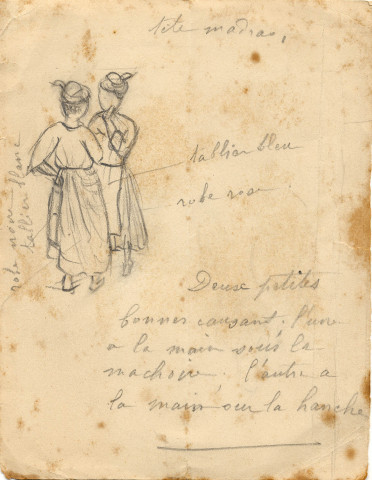 tête madras,
tablier bleu
robe rose
robe noire
tablier blanc
Deux petites
bonnes causant. l'une
a la main sous la
machoire. l'autre a
la main sur la hanche